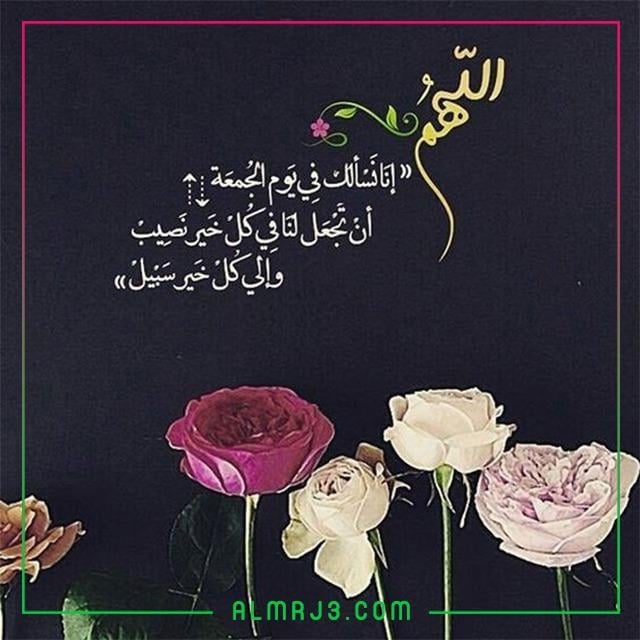 اللّهُم
« إنا نَسْألك فِي يَوم الجُمعَة
أنْ تَجْعَل لنَا فِي كُلْ خَير نَصِيبْ
وَإلي كُلْ خَير سَبْيلْ »
ALMRJ3.COM